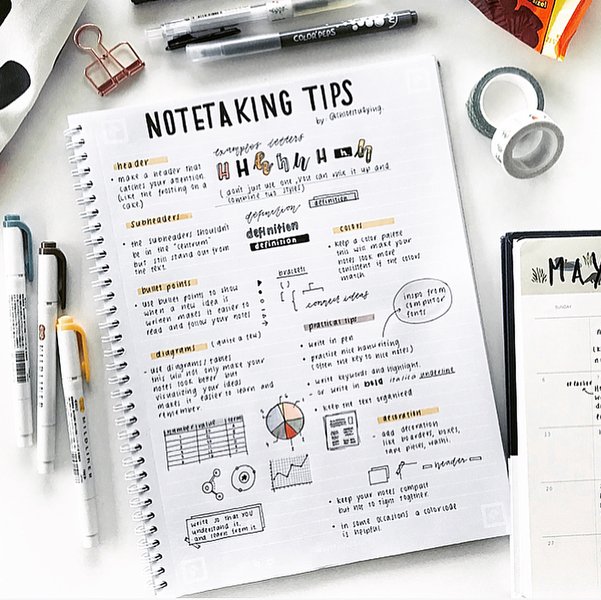 COLOR PEPS
NOTETAKING TIPS
examples letters
header
• make a header that
catches your attention
(like the frosting on a
cake)
H H h h h H h h
(don't just use one, you can mix it up and
combine two styles)
Subheaders
• the subheaders shouldn't
be in the "centrum"
but still stand out from
the text.
definition
definition
definition
definition
colors
• keep a color palette
this will make your
notes look more
consistent if the colors
match
bullet points
• use bullet points to show
when a new idea is
written, makes it easier to
read and follow your notes
brackets
connect ideas
inspo from
computor
fonts
practical tips
• write in pen
• practise nice handwriting
(often the key to nice notes)
• write keywords and highlight,
• or write in bold italica underline
• keep the text organized
diagrams (quite a few)
• use diagrams/tables
this will not only make your
notes look better but
visualizing your ideas
makes it easier to learn and
remember.
number value term
decoration
- add decoration
like boarders, boxes,
tape pieces, washi.
header
• keep your notes compact
but not to tight together.
• in some occasions a colorcode
is helpful.
write so that you
understand it
and learn from it
MAY
SUNDAY
6
13
20
27